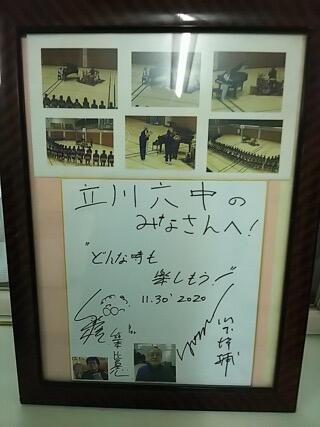 立川六中の
みなさんへ!
"どんな時も
楽しもう!"
11.30' 2020